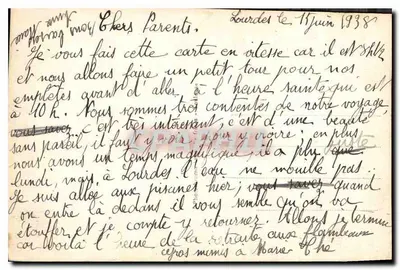 Lourdes le 15 juin 1938
Chers Parents.
Je vous fais cette carte en vitesse car il est
et nous allons faire un petit tour pour nos
emplètes avant d'aller à l'heure sainte qui est
à 10h. Nous sommes très contentes de notre voyage
c'est très intéressant, c'est d'une beauté
sans pareil, il faut y voir pour y croire; en plus
nous avons un temps magnifique; il a plu
lundi, mais à Lourdes l'eau ne mouille pas.
Je suis allée aux piscines hier; quand
on entre là dedans il vous semble qu'on va
étouffer, et je compte y retourner. Allons je termine
car voilà l'heure de la retraite aux flambeaux